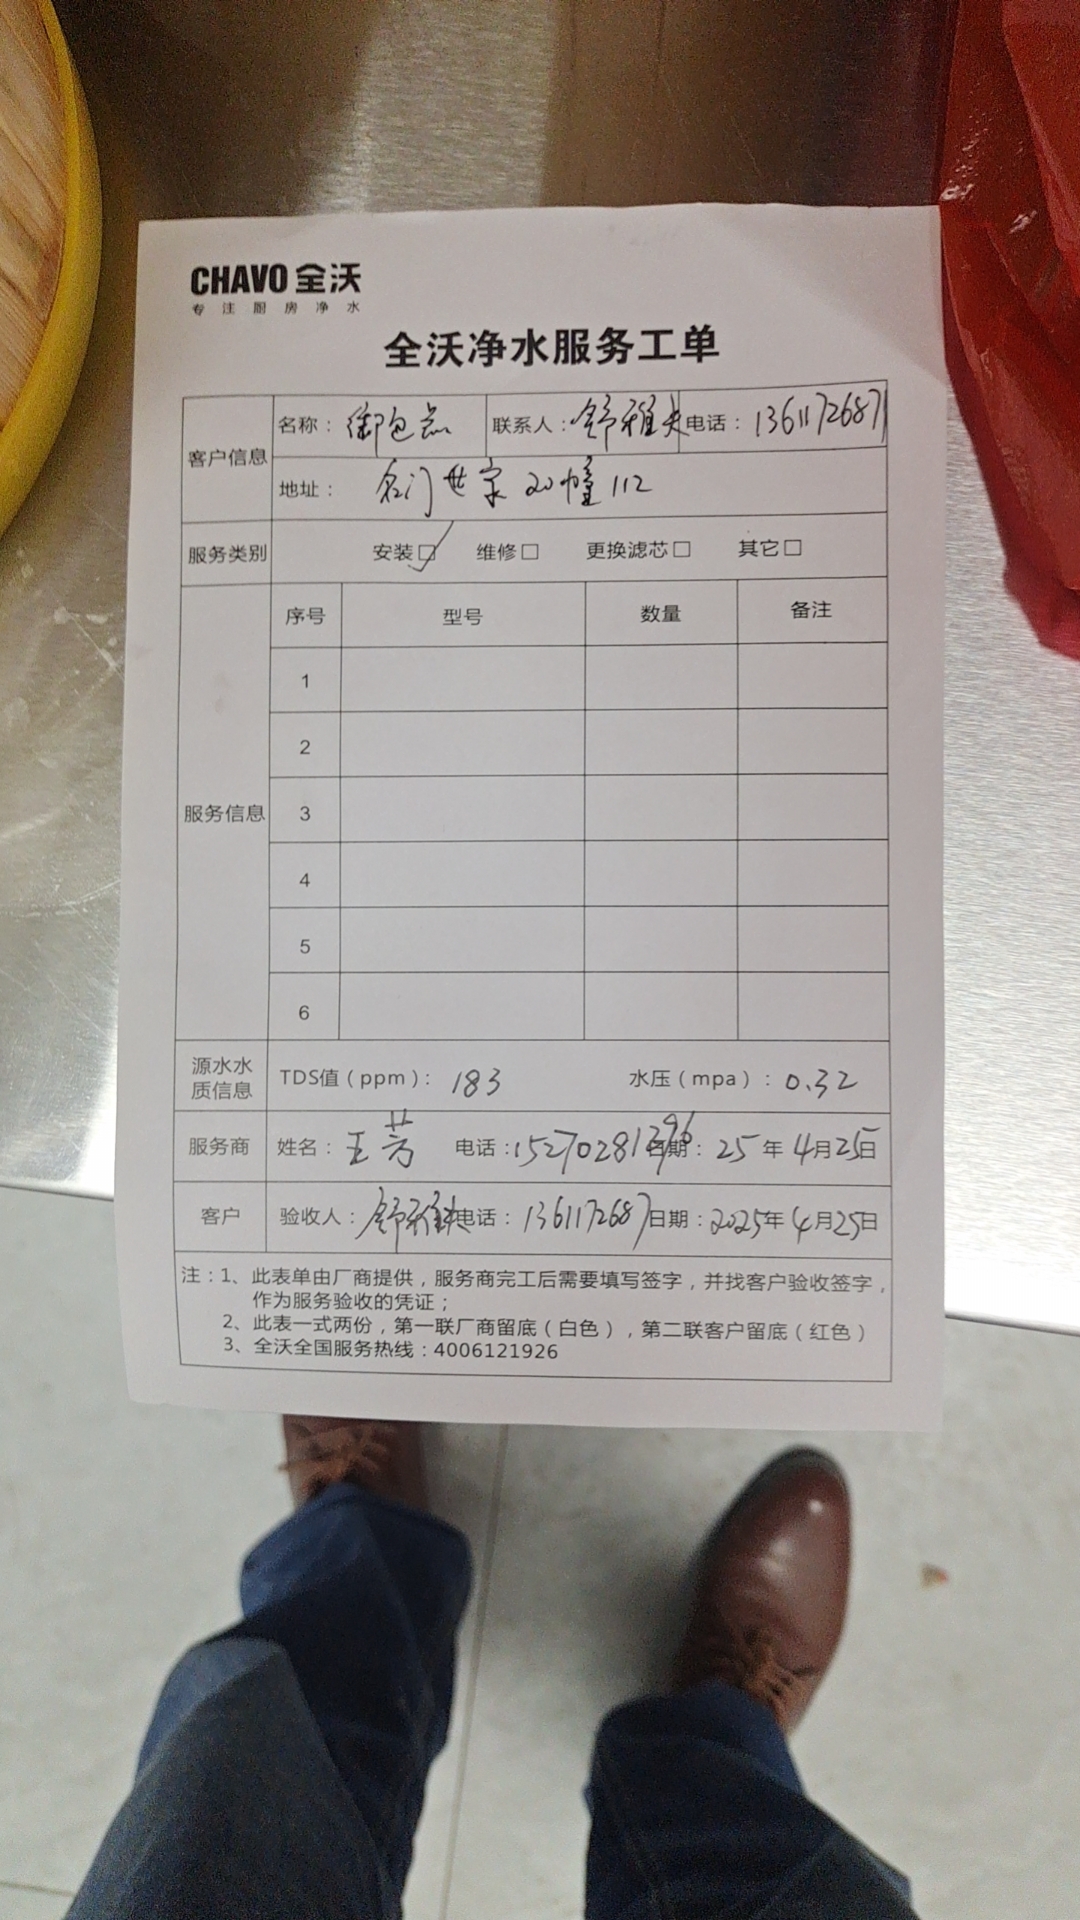 CHAVO 全沃
专注厨房净水
全沃净水服务工单
客户信息
名称： 御包点 联系人： 舒雅 电话：
地址： 名门世家 20幢 112
服务类别 安装☑ 维修□ 更换滤芯□ 其它□
服务信息
序号 型号 数量 备注
1
2
3
4
5
6
源水水质信息 TDS值（ppm）： 183 水压（mpa）： 0.32
服务商 姓名： 王芳 电话： 15270281296 日期： 25年4月25日
客户 验收人： 舒雅 电话： 日期： 2025年4月25日
注：1、此表单由厂商提供，服务商完工后需要填写签字，并找客户验收签字，
作为服务验收的凭证；
2、此表一式两份，第一联厂商留底（白色），第二联客户留底（红色）
3、全沃全国服务热线：4006121926